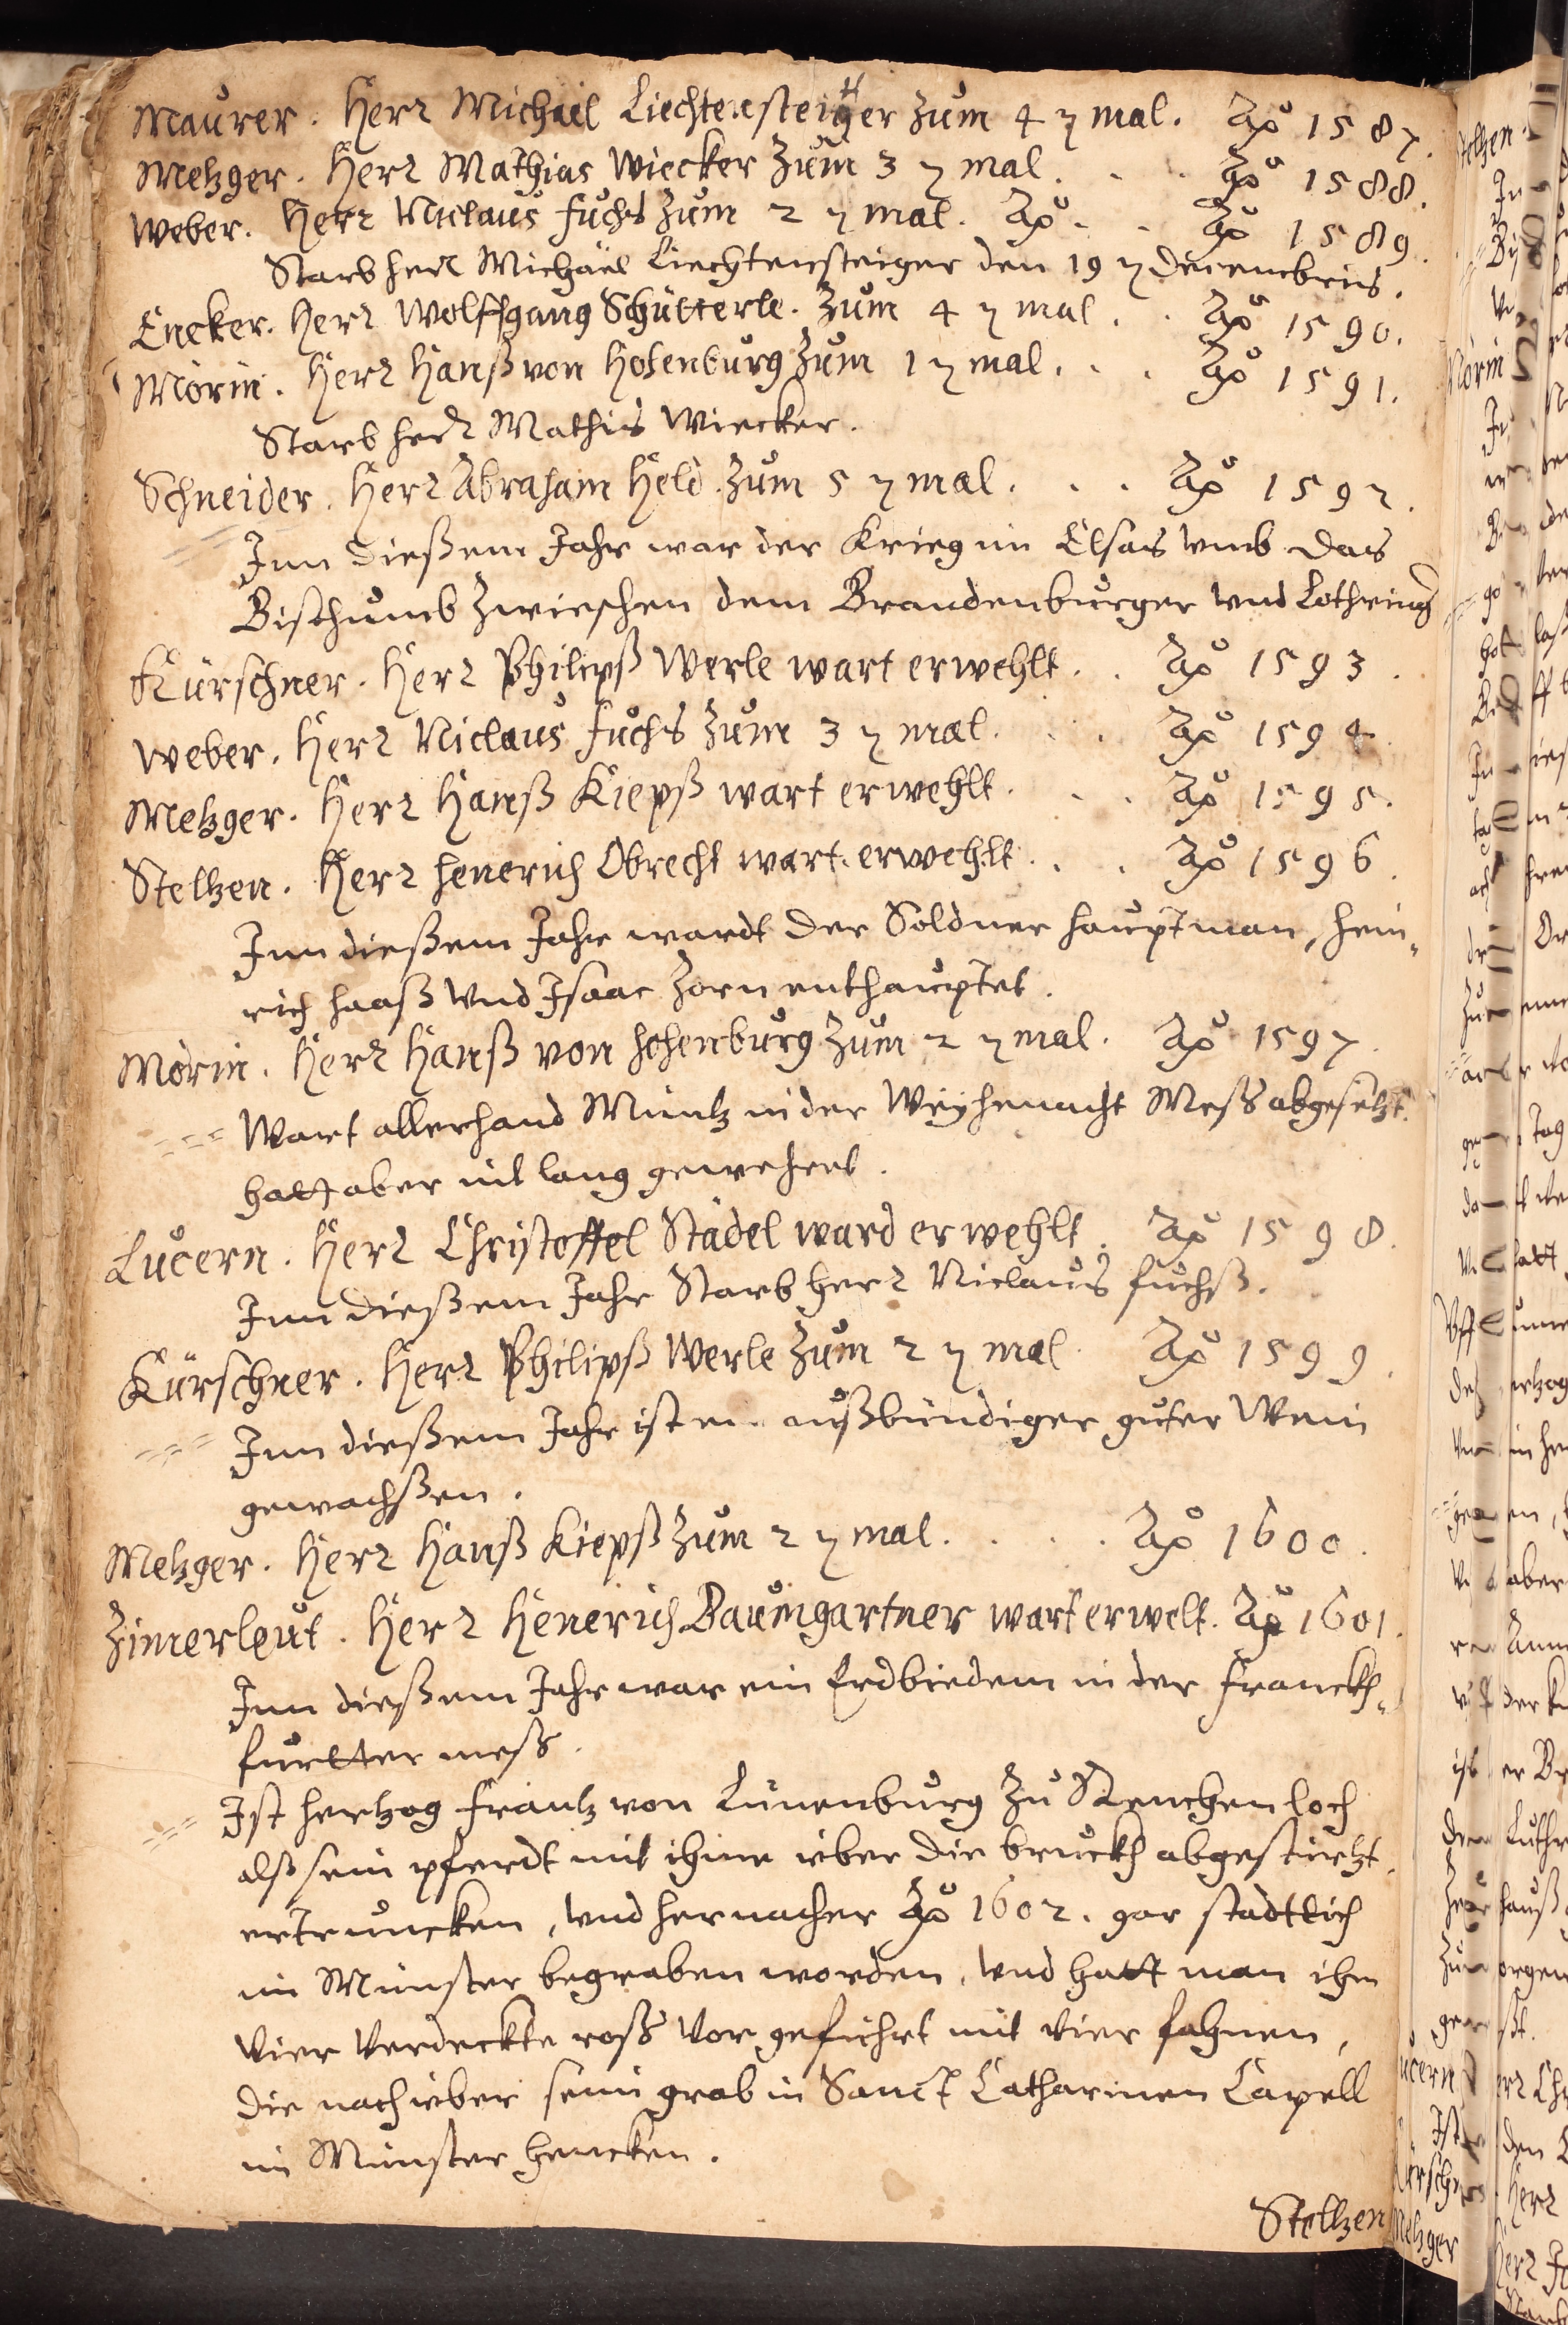 Maurer. Herr Michael Liechtensteiger zum 4 ten mal. Ao 1587.
Metzger. Herr Mathias Wiecker zum 3 ten mal. . . Ao 1588.
Weber. Herr Niclaus Fuchs zum 2 ten mal. Ao . . Ao 1589.
Starb herr Michael Liechtensteiger den 19 ten Decembris.
Encker. Herr Wolffgang Schütterle. zum 4 ten mal . . Ao 1590.
Mörin. Herr Hanß von Hohenburg zum 1 ten mal. . . Ao 1591.
Starb herr Mathis Wiecker.
Schneider. Herr Abraham Held. zum 5 ten mal. . . Ao 1592.
Inn dießem Jahr war der Krieg im Elsas vmb das
Bisthumb zwischen dem Brandenburger vnd Lothring
Kürschner. Herr Philipß Werle wart erwehlt. . Ao 1593.
Weber. Herr Niclaus Fuchs zum 3 ten mal. . . Ao 1594.
Metzger. Herr Hanß Kiepß wart erwehlt. . . Ao 1595.
Steltzen. Herr Henerich Obrecht wart erwehlt. . . Ao 1596.
Inn dießem Jahr wardt der Soldner hauptman, hein,
rich haaß vnd Isaac Zorn enthauptet.
Mörin. Herr Hanß von Hohenburg zum 2 ten mal. Ao 1597.
Wart allerhand Müntz in der Weyhenacht Meß abgesetzt.
hatt aber nit lang gewehret.
Lucern. Herr Christoffel Städel ward erwehlt. Ao 1598.
Inn dießem Jahr Starb herr Niclaus fuchß.
Kürschner. Herr Philipß Werle zum 2 ten mal. Ao 1599.
Inn dießem Jahr ist ein außbündiger guter Wein
gewachßen.
Metzger. Herr Hanß Kiepß zum 2 ten mal. . . . Ao 1600.
Zimerleut. Herr Henerich Baumgartner wart erwelt. Ao 1601.
Inn dießem Jahr war ein Erdbiedem in der Franckh,
furtter meß.
Ist hertzog Frantz von Lünenburg zu Stenchenloch
alß sein pferdt mit ihme über die bruckh abgestürtzt,
ertruncken, vnd hernacher Ao 1602. gar stadtlich
im Münster begraben worden, vnd hatt man ihm
vier verdeckte roß vor geführt mit vier fahnen,
die noch über seim grab in Sanct Catharinen Capell
im Münster hencken.
Steltzen